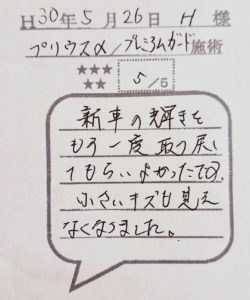 H30年5月26日 H 様
プリウスα/プレミアムガード施術
★★★
★★
5/5
新車の輝きを
もう一度取り戻し
てもらいよかったです。
小さいキズも見え
なくなりました。